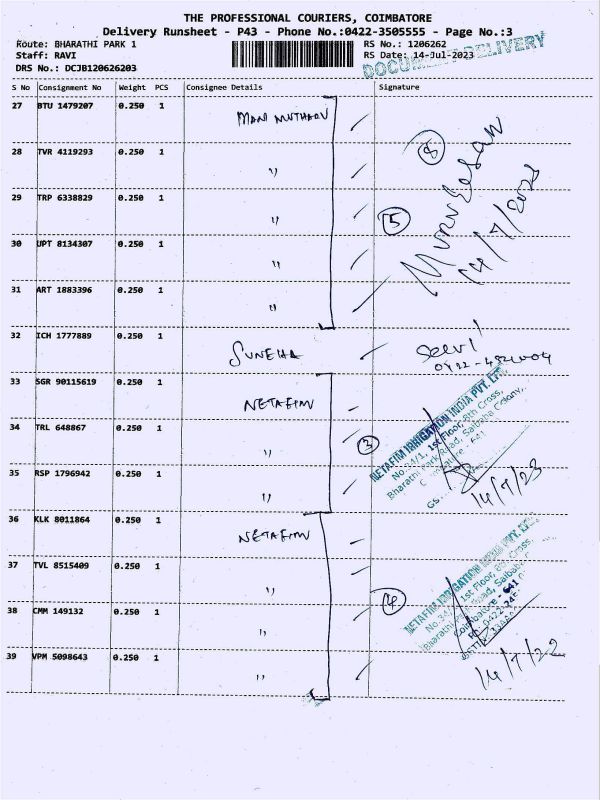 THE PROFESSIONAL COURIERS, COIMBATORE
Delivery Runsheet - P43 - Phone No.:0422-3505555 - Page No.:3
Route: BHARATHI PARK 1 RS No.: 1206262
Staff: RAVI RS Date: 14-Jul-2023
DRS No.: DCJB120626203
DOCUMENT DELIVERY
S No Consignment No Weight PCS Consignee Details Signature
27 BTU 1479207 0.250 1
28 TVR 4119293 0.250 1 〃
29 TRP 6338829 0.250 1 〃
30 UPT 8134307 0.250 1 〃
31 ART 1883396 0.250 1 〃
8
5
14/7/2023
32 ICH 1777889 0.250 1 SUNEHA
33 SGR 90115619 0.250 1 NETAFIM
34 TRL 648867 0.250 1 〃
35 RSP 1796942 0.250 1 〃
3
NETAFIM IRRIGATION INDIA PVT. LTD.
No.34/1, 1st Floor, 8th Cross,
Bharathi Park Road, Saibaba Colony,
14/7/23
36 KLK 8011864 0.250 1 NETAFIM
37 TVL 8515409 0.250 1 〃
38 CMM 149132 0.250 1 〃
39 VPM 5098643 0.250 1 〃
4
NETAFIM IRRIGATION INDIA PVT. LTD.
1st Floor, 8th Cross,
Coimbatore - 641
14/7/23